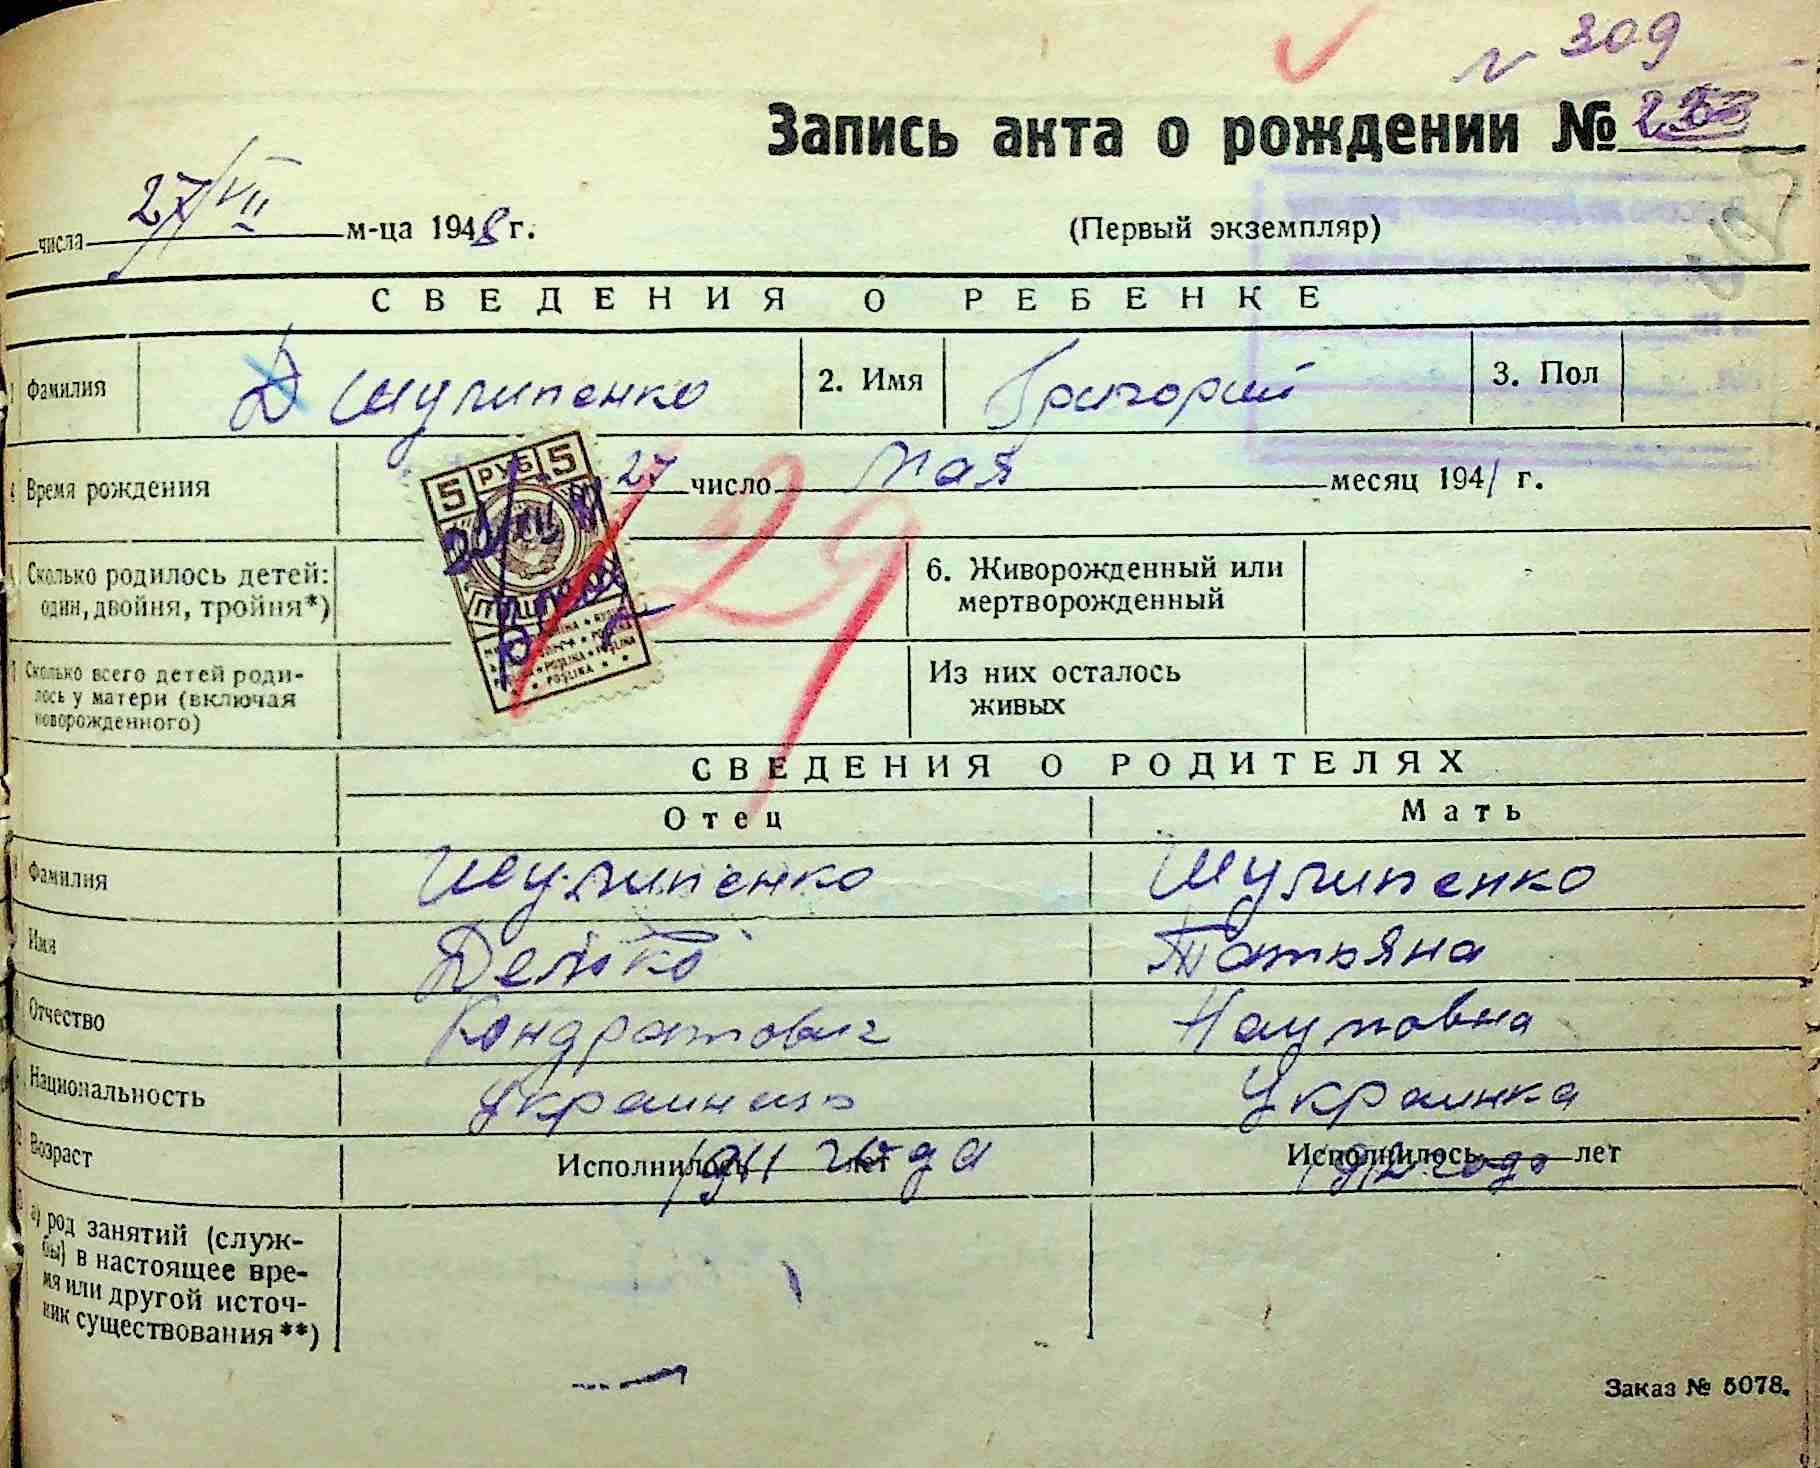 № 309
Запись акта о рождении №
числа 27/VII м-ца 1948 г. (Первый экземпляр)
СВЕДЕНИЯ О РЕБЕНКЕ
Фамилия Шулипенко 2. Имя Григорий 3. Пол
Время рождения 27 число мая месяц 1941 г.
5 РУБ 5
29
Сколько родилось детей: 6. Живорожденный или
один, двойня, тройня*) мертворожденный
POŞLINA
Сколько всего детей роди- Из них осталось
лось у матери (включая живых
новорожденного)
СВЕДЕНИЯ О РОДИТЕЛЯХ
Отец Мать
Фамилия Шулипенко Шулипенко
Имя Татьяна
Отчество Кондратович Наумовна
Национальность украинец Украинка
Возраст Исполнилось 1911 года лет Исполнилось 1912 года лет
а) род занятий (служ-
бы) в настоящее вре-
мя или другой источ-
ник существования**)
Заказ № 5078.